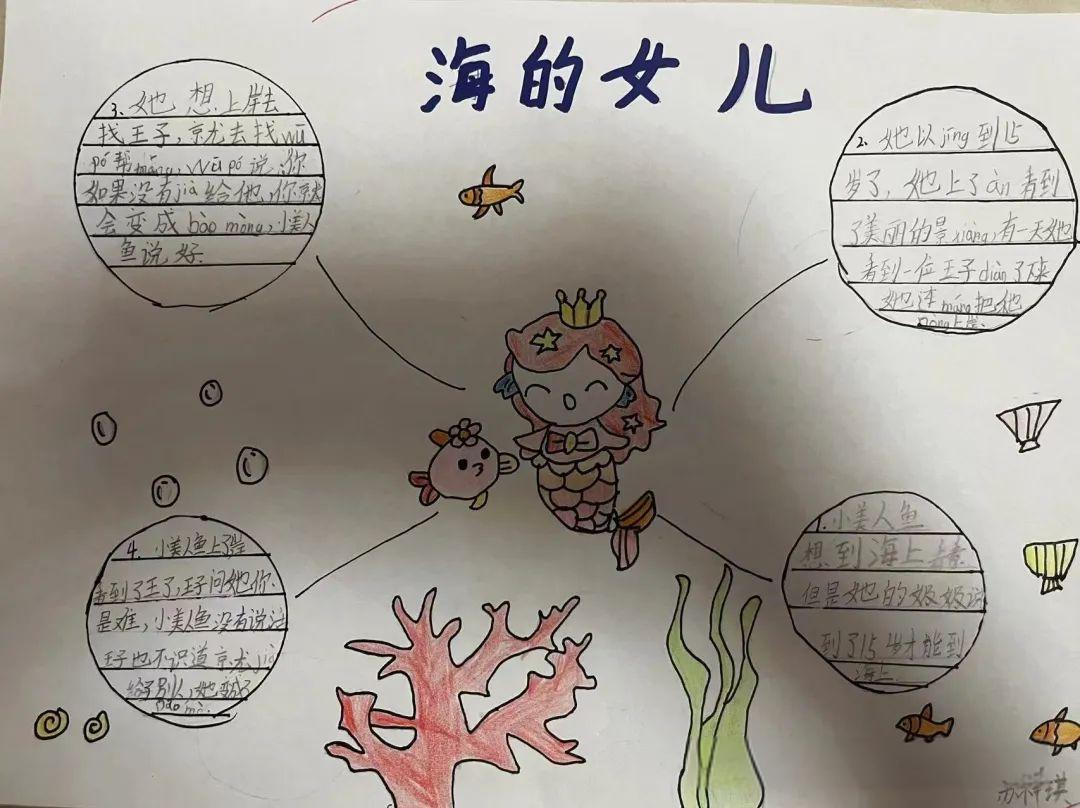 海的女儿
3、她 想 上岸去
找王子，京尤去找wū
pó帮máng，wū pó说：你
如果没有jià给他，你就
会变成bào mòng，小美人
鱼说好.
2、她以jīng到15
岁了，她上了àn看到
了美丽的景xiàng，有一天她
看到一位王子diàn了水
她连máng把他
上岸.
1、小美人鱼
想到海上去看
但是她的奶奶说
到了15岁才能到
海上
4、小美人鱼上了岸
看到了王了，王子问她你
是难，小美人鱼没有说注
王子也不识道京尤jià
给了别人，她变成了
bào mò.
苏梓琪